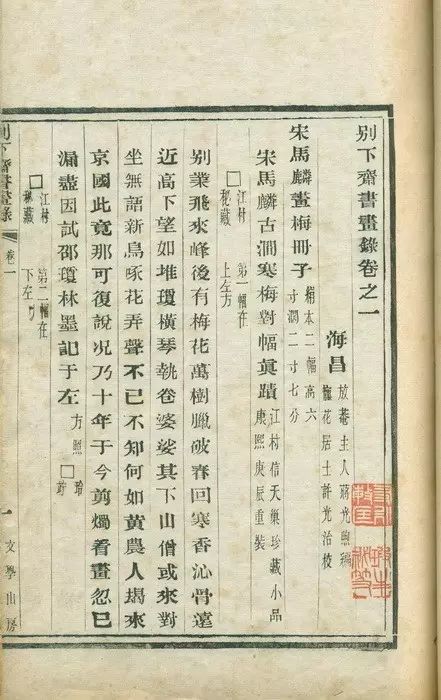 別下齋書畫錄卷之一
海昌 放菴主人蔣光煦編
花居士許光治校
宋馬麟畫梅冊子 絹本二幅高六
寸濶二寸七分
宋馬麟古澗寒梅對幅真蹟 江村信天巢珍藏小品
康熙庚辰重裝
□ 江村 第一幅在
秘藏 上左方
別業飛來峰後有梅花萬樹臘破春回寒香沁骨遠
近高下望如堆瓊橫琴執卷婆娑其下山僧或來對
坐無語新鳥啄花弄聲不已不知何如黃農人朅來
京國此竟那可復說况乃十年于今剪燭看畫忽已
漏盡因試邵瓊林墨記于左 方 照 □ 玲
竘
□ 江村 第二幅在
秘藏 下左方
別下齋書畫錄 卷一
一 文學山房